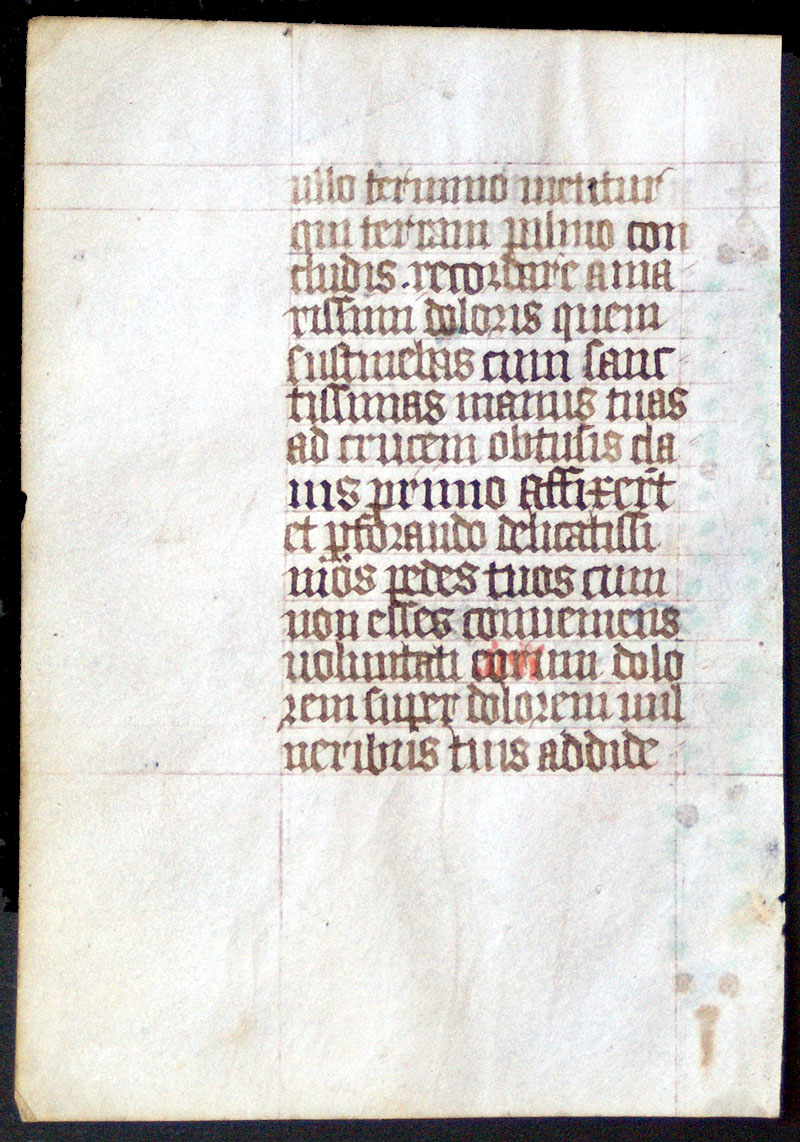 ullo termino metitur
qui terram palmo con
cludis . recordare ama
rissimi doloris quem
sustinebas cum sanc
tissimas manus tuas
ad crucem obtusis cla
uis primo affixer̄t
et ꝑforando delicatissi
mos pedes tuos cum
non esses conueniens
uoluntati eorum dolo
rem super dolorem uul
neribus tuis addide